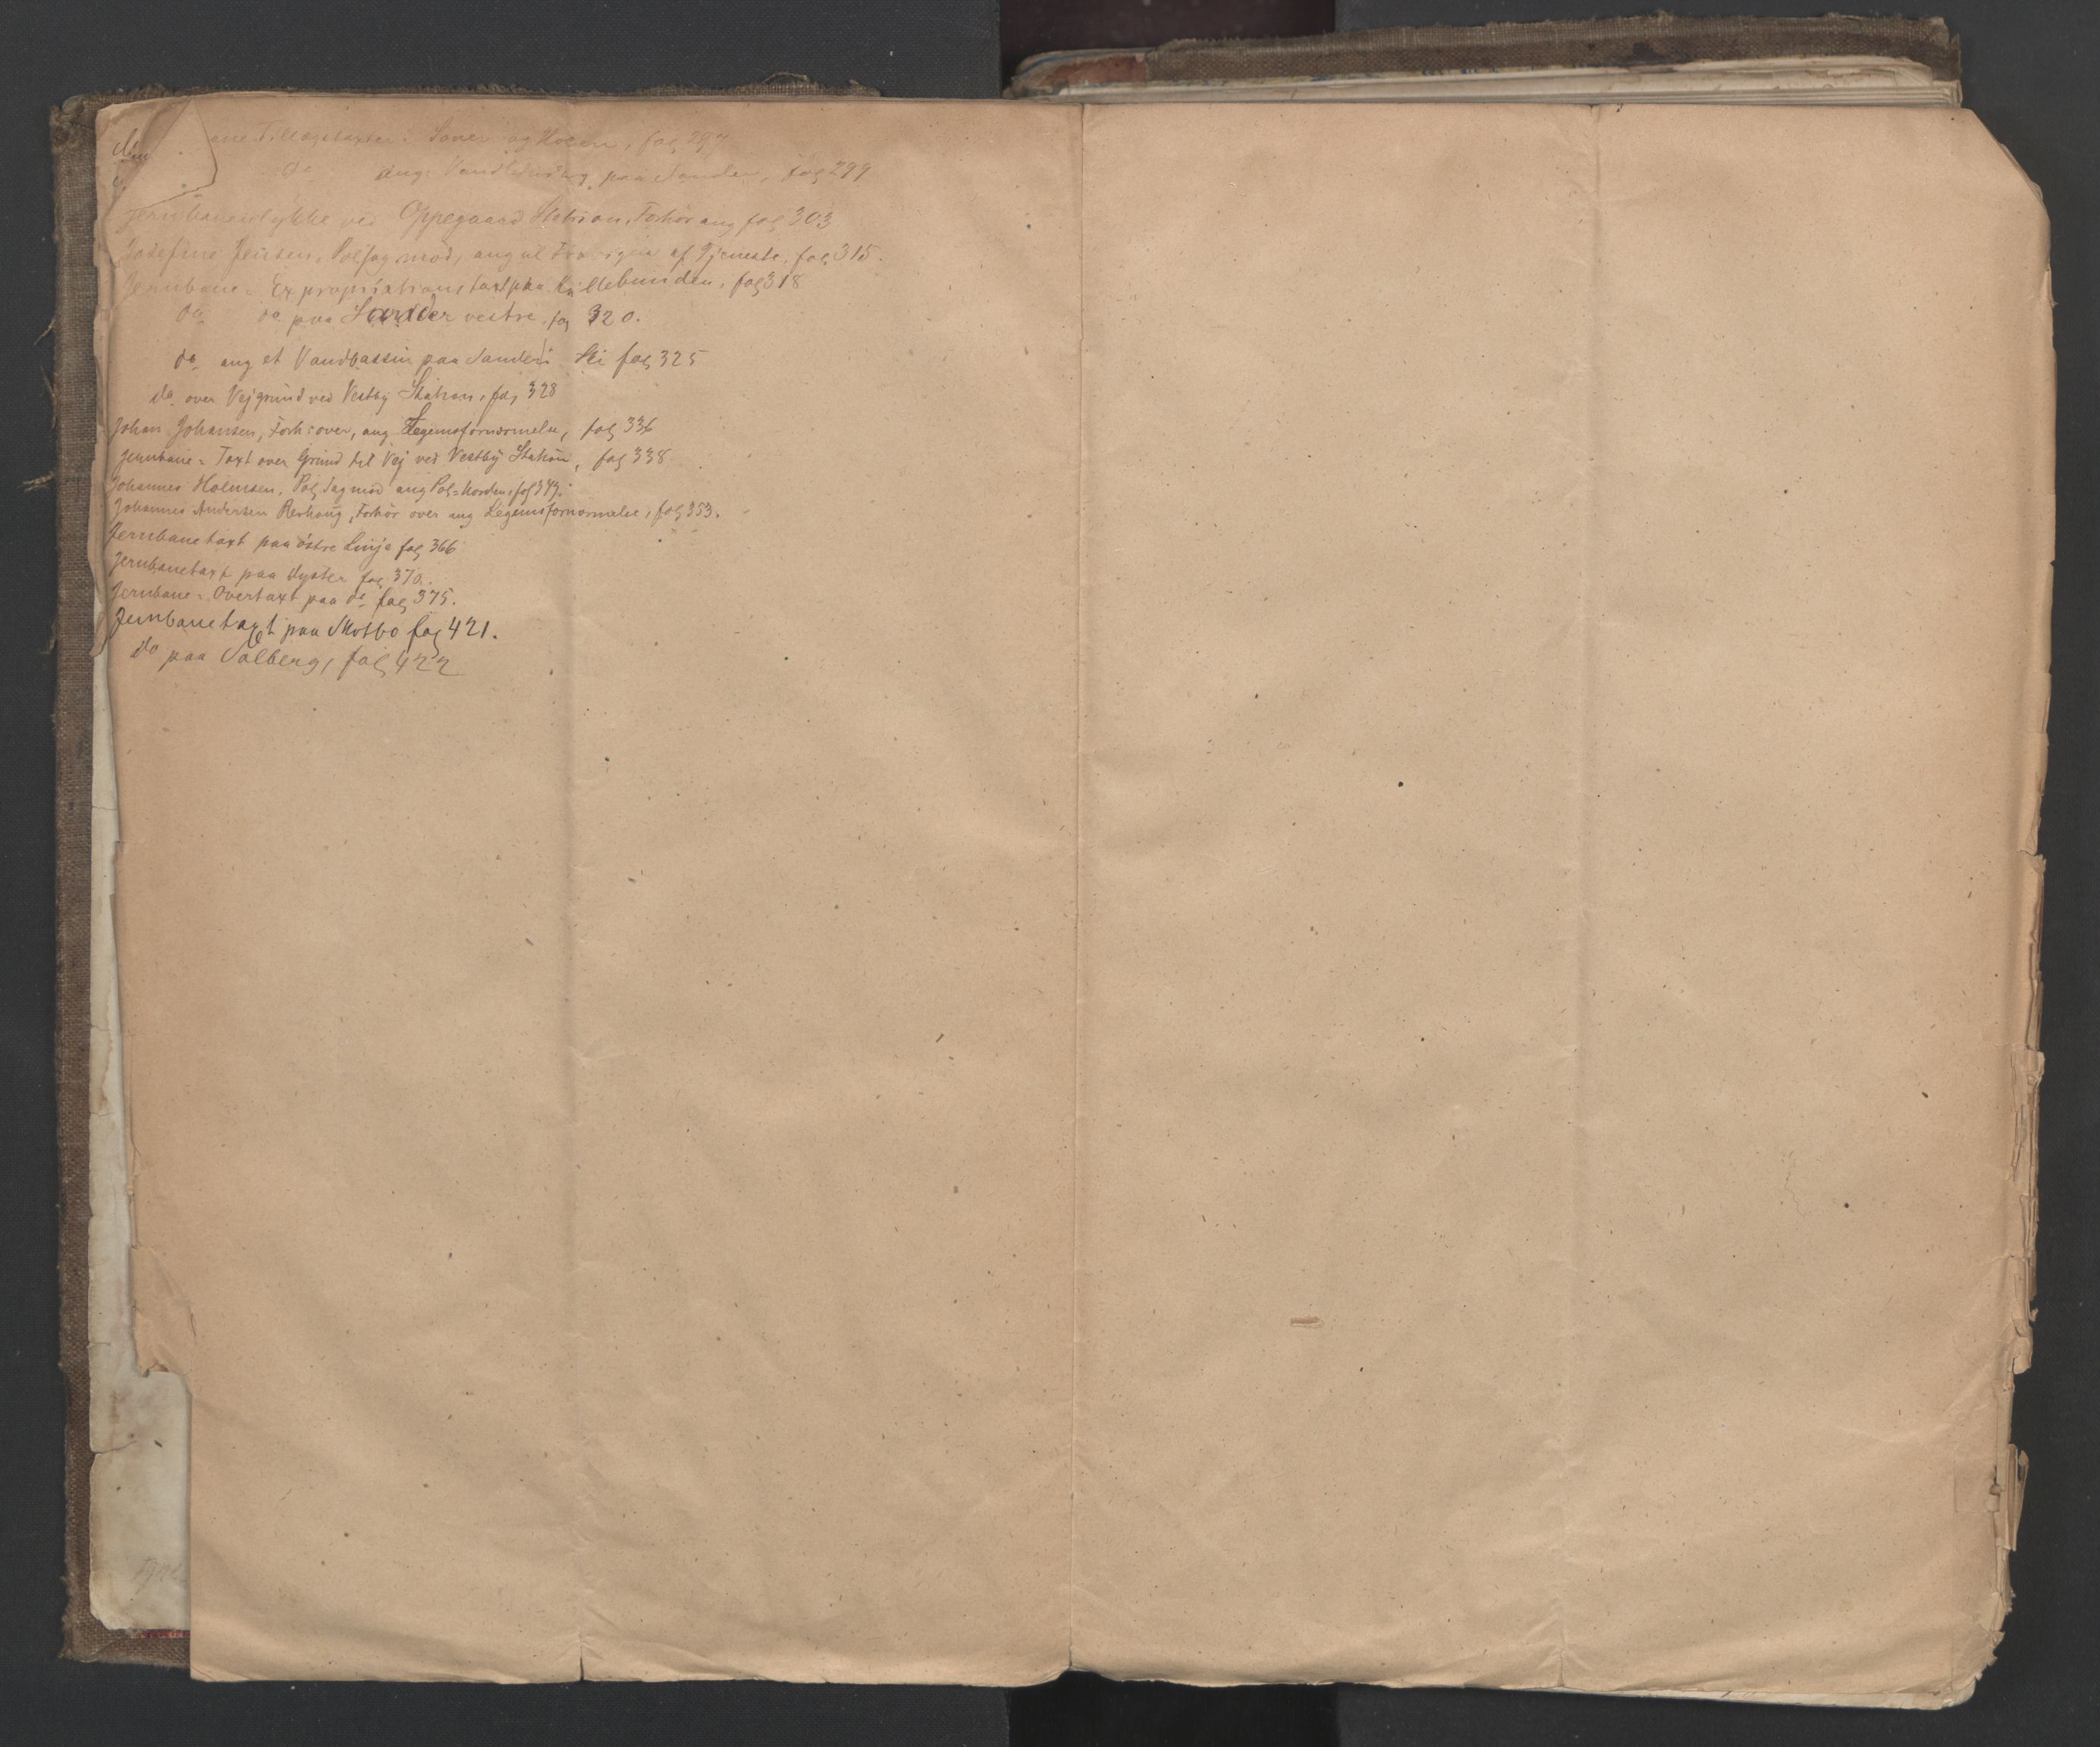 ane Tillægstaxter: Soner og Hoeen, fol 297
do ang: Vandledning paa Sander, fol 299
Jernbaneulykke ved Oppegaard Station, Forhör ang fol 303
Josefine Jensen, Pol sag mod, ang af Tjeneste, fol 315.
Jernbane = Expropriationstaxt paa Killebunden, fol 318
do do paa Sander vestre, fol 320.
do ang et Vandbassin paa Sander i Ski fol 325
do over Vejgrund ved Vestby Station, fol 328
Johan Johansen, Forh: over, ang Legemsfornærmelse, fol 336
Jernbane = Taxt over Grund til Vej ved Vestby Station, fol 338
Johannes Holmsen, Pol Sag mod ang Pol=horden, fol 349.
Johannes Andersen Berhaug, Forhör over ang Legemsfornærmelse, fol 353.
Jernbanetaxt paa östre Linje fol 366
Jernbanetaxt paa Nyster fol 370.
Jernbane = Overtaxt paa do fol 375.
Jernbanetaxt paa Motbo fol 421.
do paa Solberg, fol 422